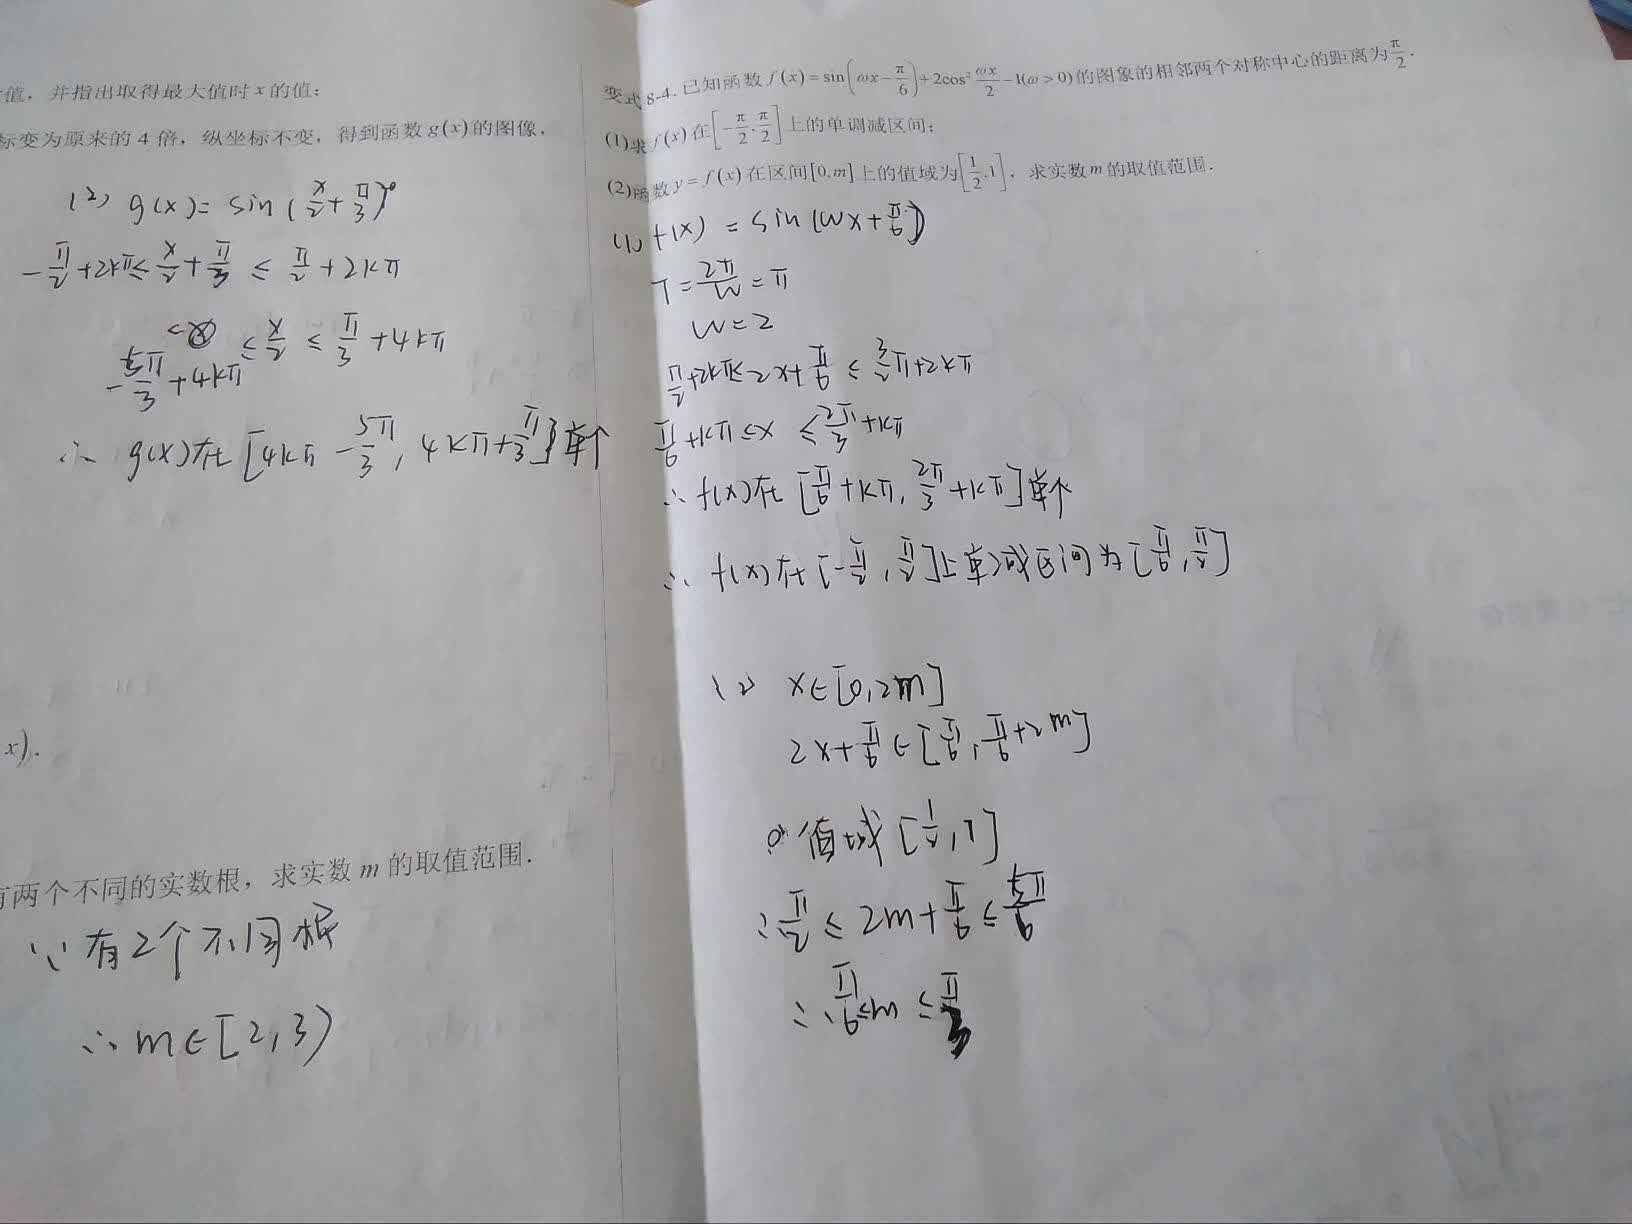 值，并指出取得最大值时x的值；
标变为原来的4倍，纵坐标不变，得到函数g(x)的图像，
(2) g(x) = sin(x/2+π/3)
-π/2+2kπ≤x/2+π/3 ≤ π/2+2kπ
-5π/3+4kπ ≤x/2 ≤ π/3+4kπ
∴ g(x)在[4kπ-5π/3, 4kπ+π/3]单个
x).
有两个不同的实数根，求实数m的取值范围.
∵有2个不同根
∴m∈[2,3)
变式8-4.已知函数f(x)=sin(ωx-π/6)+2cos²ωx/2-1(ω>0)的图象的相邻两个对称中心的距离为π/2.
(1)求f(x)在[-π/2,π/2]上的单调减区间；
(2)函数y=f(x)在区间[0,m]上的值域为[1/2,1]，求实数m的取值范围.
(1) f(x) = sin(wx+π/6)
T=2π/w=π
w=2
π/2+2kπ≤2x+π/6≤3/2π+2kπ
π/6+kπ≤x≤2π/3+kπ
∴f(x)在[π/6+kπ,2π/3+kπ]单
∴f(x)在[-π/2,π/2]上单减区间为[π/6,π/2]
(2) x∈[0,2m]
2x+π/6∈[π/6,π/6+2m]
值域[1/2,1]
∴π/2≤2m+π/6≤5π/6
∴π/6≤m≤π/3